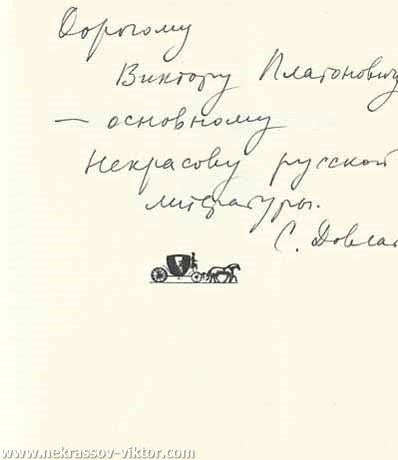 Дорогому
Виктору Платонович
— основному
Некрасову русской
литературы.
С. Довлат
www.nekrassov-viktor.com